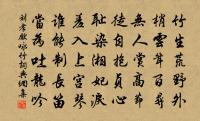 竹生荒野外
梢雲聳百尋
無人賞高節
徒自抱貞心
恥染湘妃淚
羞入上宮琴
誰能制長笛
當為吐龍吟
詠竹詞典網集